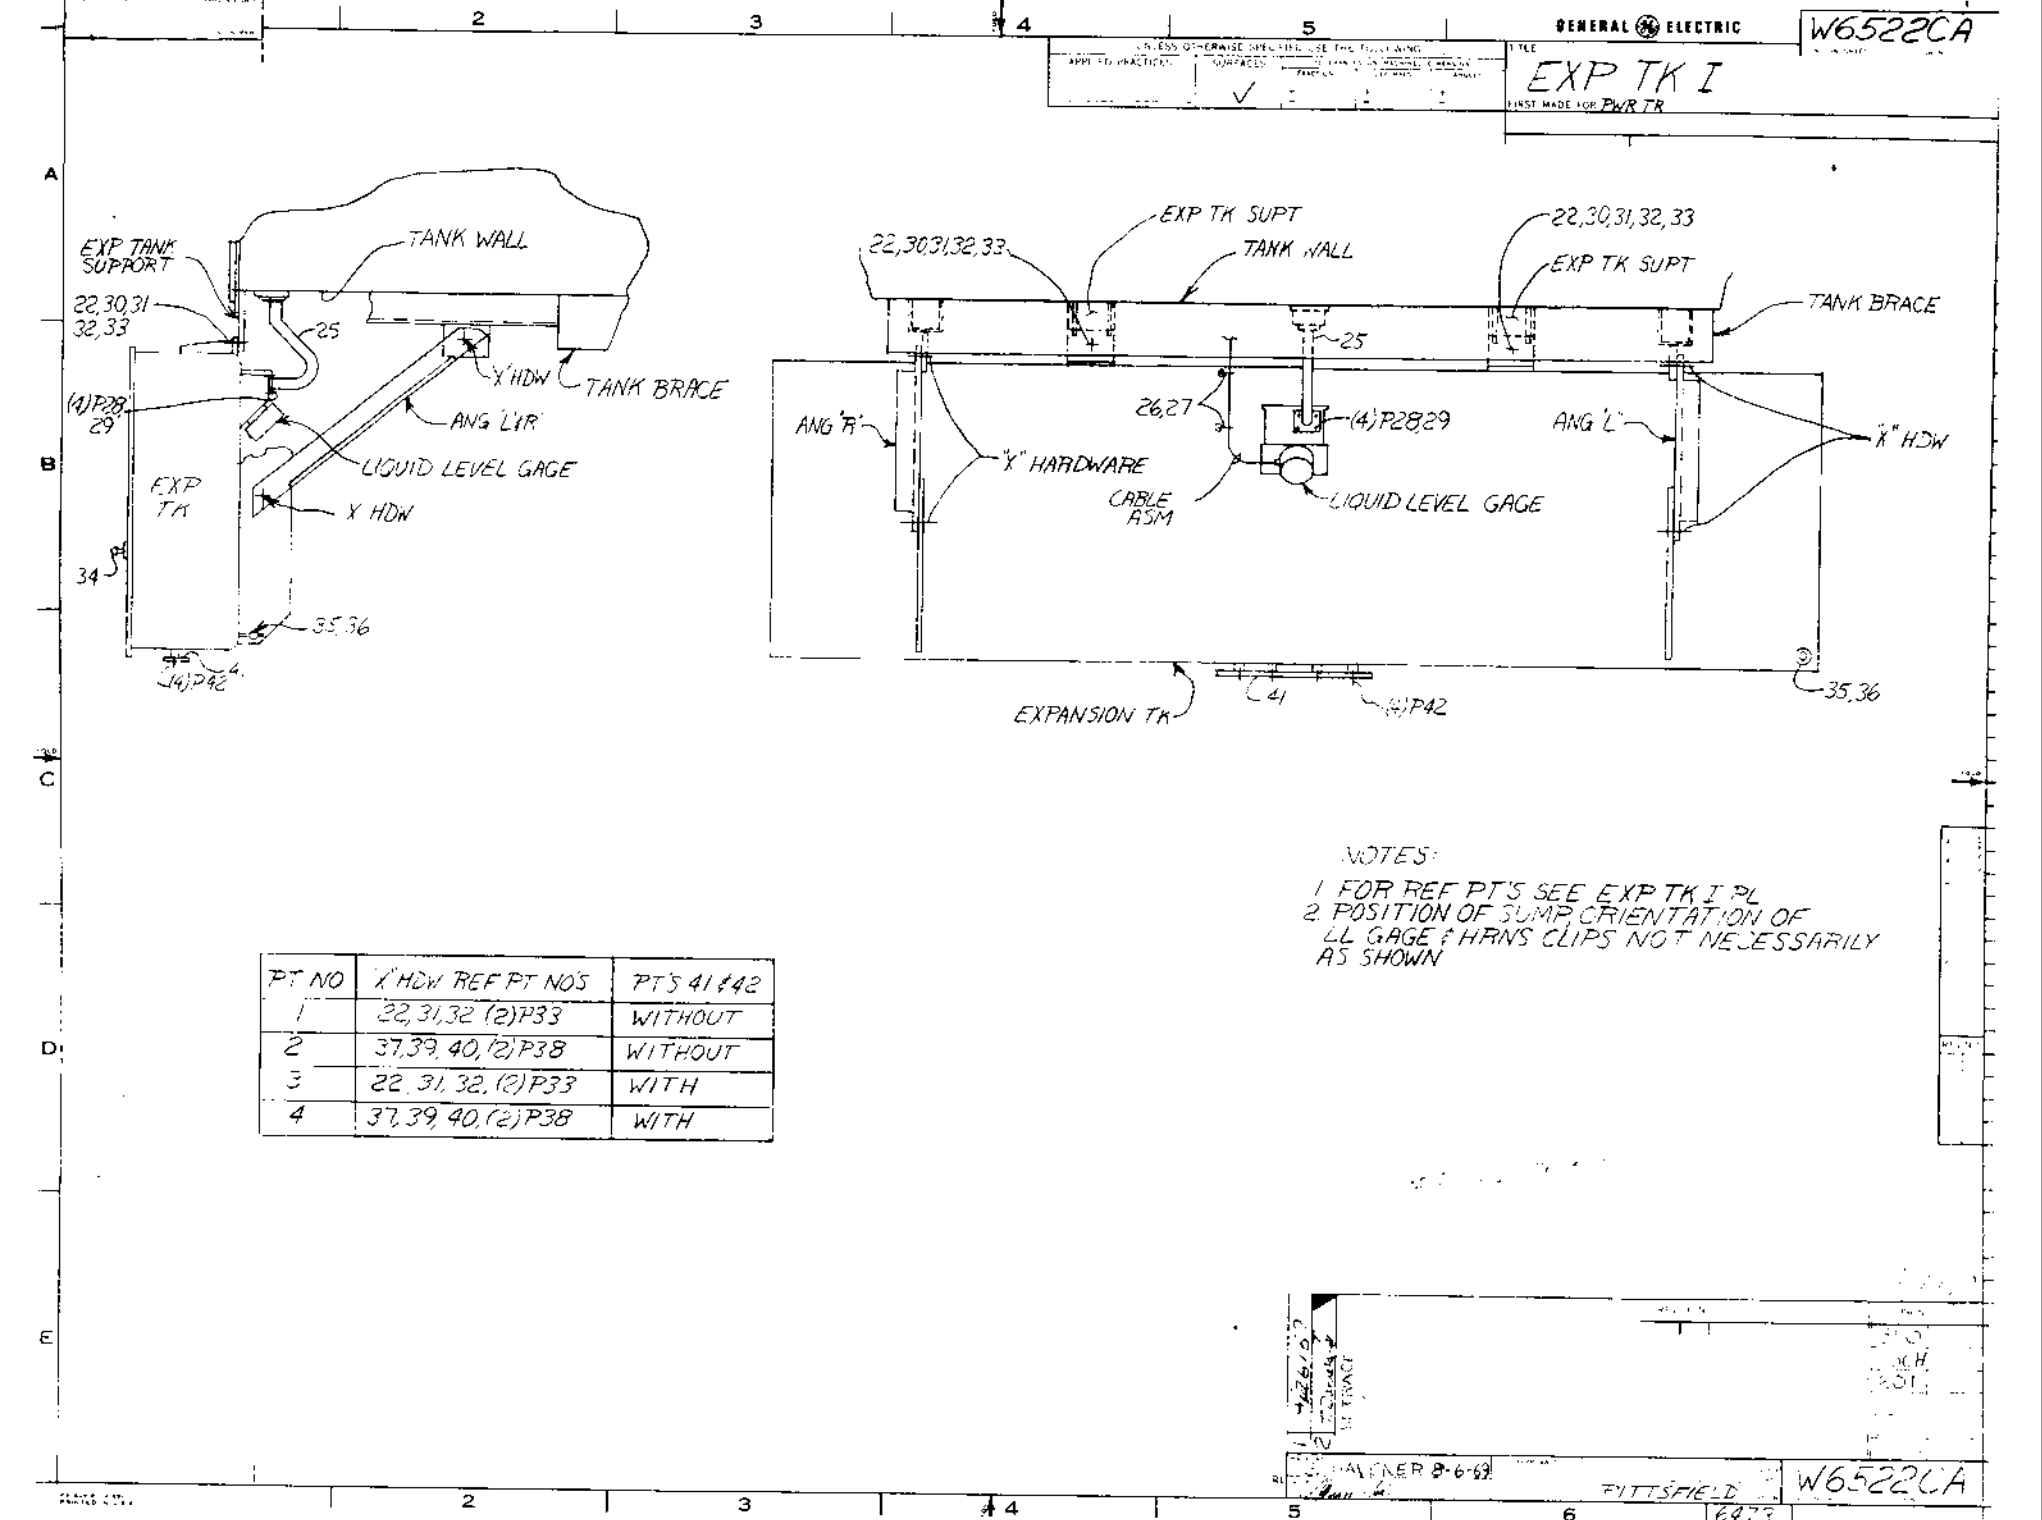 2 3 4 5
GENERAL ELECTRIC
W6522CA
UNLESS OTHERWISE SPECIFIED USE THE FOLLOWING
APPLIED PRACTICES
SURFACES
TITLE
EXP TK I
FIRST MADE FOR PWR TR
A
EXP TANK
SUPPORT
TANK WALL
22,30,31
32,33
25
'X' HDW
TANK BRACE
(4)P28
29
ANG 'L'&'R'
LIQUID LEVEL GAGE
B
EXP
TK
X HDW
34
35,36
(4)P42
EXP TK SUPT
22,30,31,32,33
22,30,31,32,33
TANK WALL
EXP TK SUPT
TANK BRACE
25
26,27
(4)P28,29
ANG 'R'
ANG 'L'
"X" HDW
"X" HARDWARE
CABLE
ASM
LIQUID LEVEL GAGE
41
(4)P42
35,36
EXPANSION TK
C
NOTES:
1 FOR REF PT'S SEE EXP TK I PL
2. POSITION OF SUMP, ORIENTATION OF
LL GAGE & HRNS CLIPS NOT NECESSARILY
AS SHOWN
PT NO "X" HDW REF PT NO'S PT'S 41 & 42
1 22,31,32 (2)P33 WITHOUT
2 37,39,40,(2)P38 WITHOUT
3 22,31,32,(2)P33 WITH
4 37,39,40,(2)P38 WITH
D
E
1
2
8-6-69
PITTSFIELD
W6522CA
2 3 4 5 6